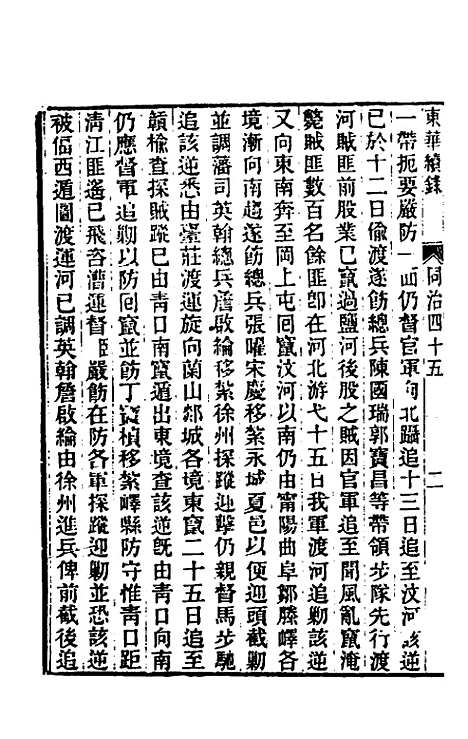 東華續錄 同治四十五 二
一帶扼要嚴防一面仍督官軍向北躡追十三日追至汶河該逆
已於十二日偷渡遂飭總兵陳國瑞郭寶昌等帶領步隊先行渡
河賊匪前股業已竄過鹽河後股之賊因官軍追至聞風亂竄淹
斃賊匪數百名餘匪卽在河北游弋十五日我軍渡河追勦該逆
又向東南奔至岡上屯回竄汶河以南仍由甯陽曲阜鄒滕嶧各
境漸向南趨遂飭總兵張曜宋慶移紮永城夏邑以便迎頭截勦
並調藩司英翰總兵詹啟綸移紮徐州探蹤迎擊仍親督馬步馳
追該逆悉由臺莊渡運旋向蘭山郯城各境東竄二十五日追至
贛榆查探賊蹤已由青口南竄遁出東境查該逆旣由青口向南
仍應督軍追勦以防回竄並飭丁寶楨移紮嶧縣防守惟青口距
清江匪遙已飛咨漕運督 嚴飭在防各軍探蹤迎勦並恐該逆
被偪西遁圖渡運河已調英翰詹啟綸由徐州進兵俾前截後追